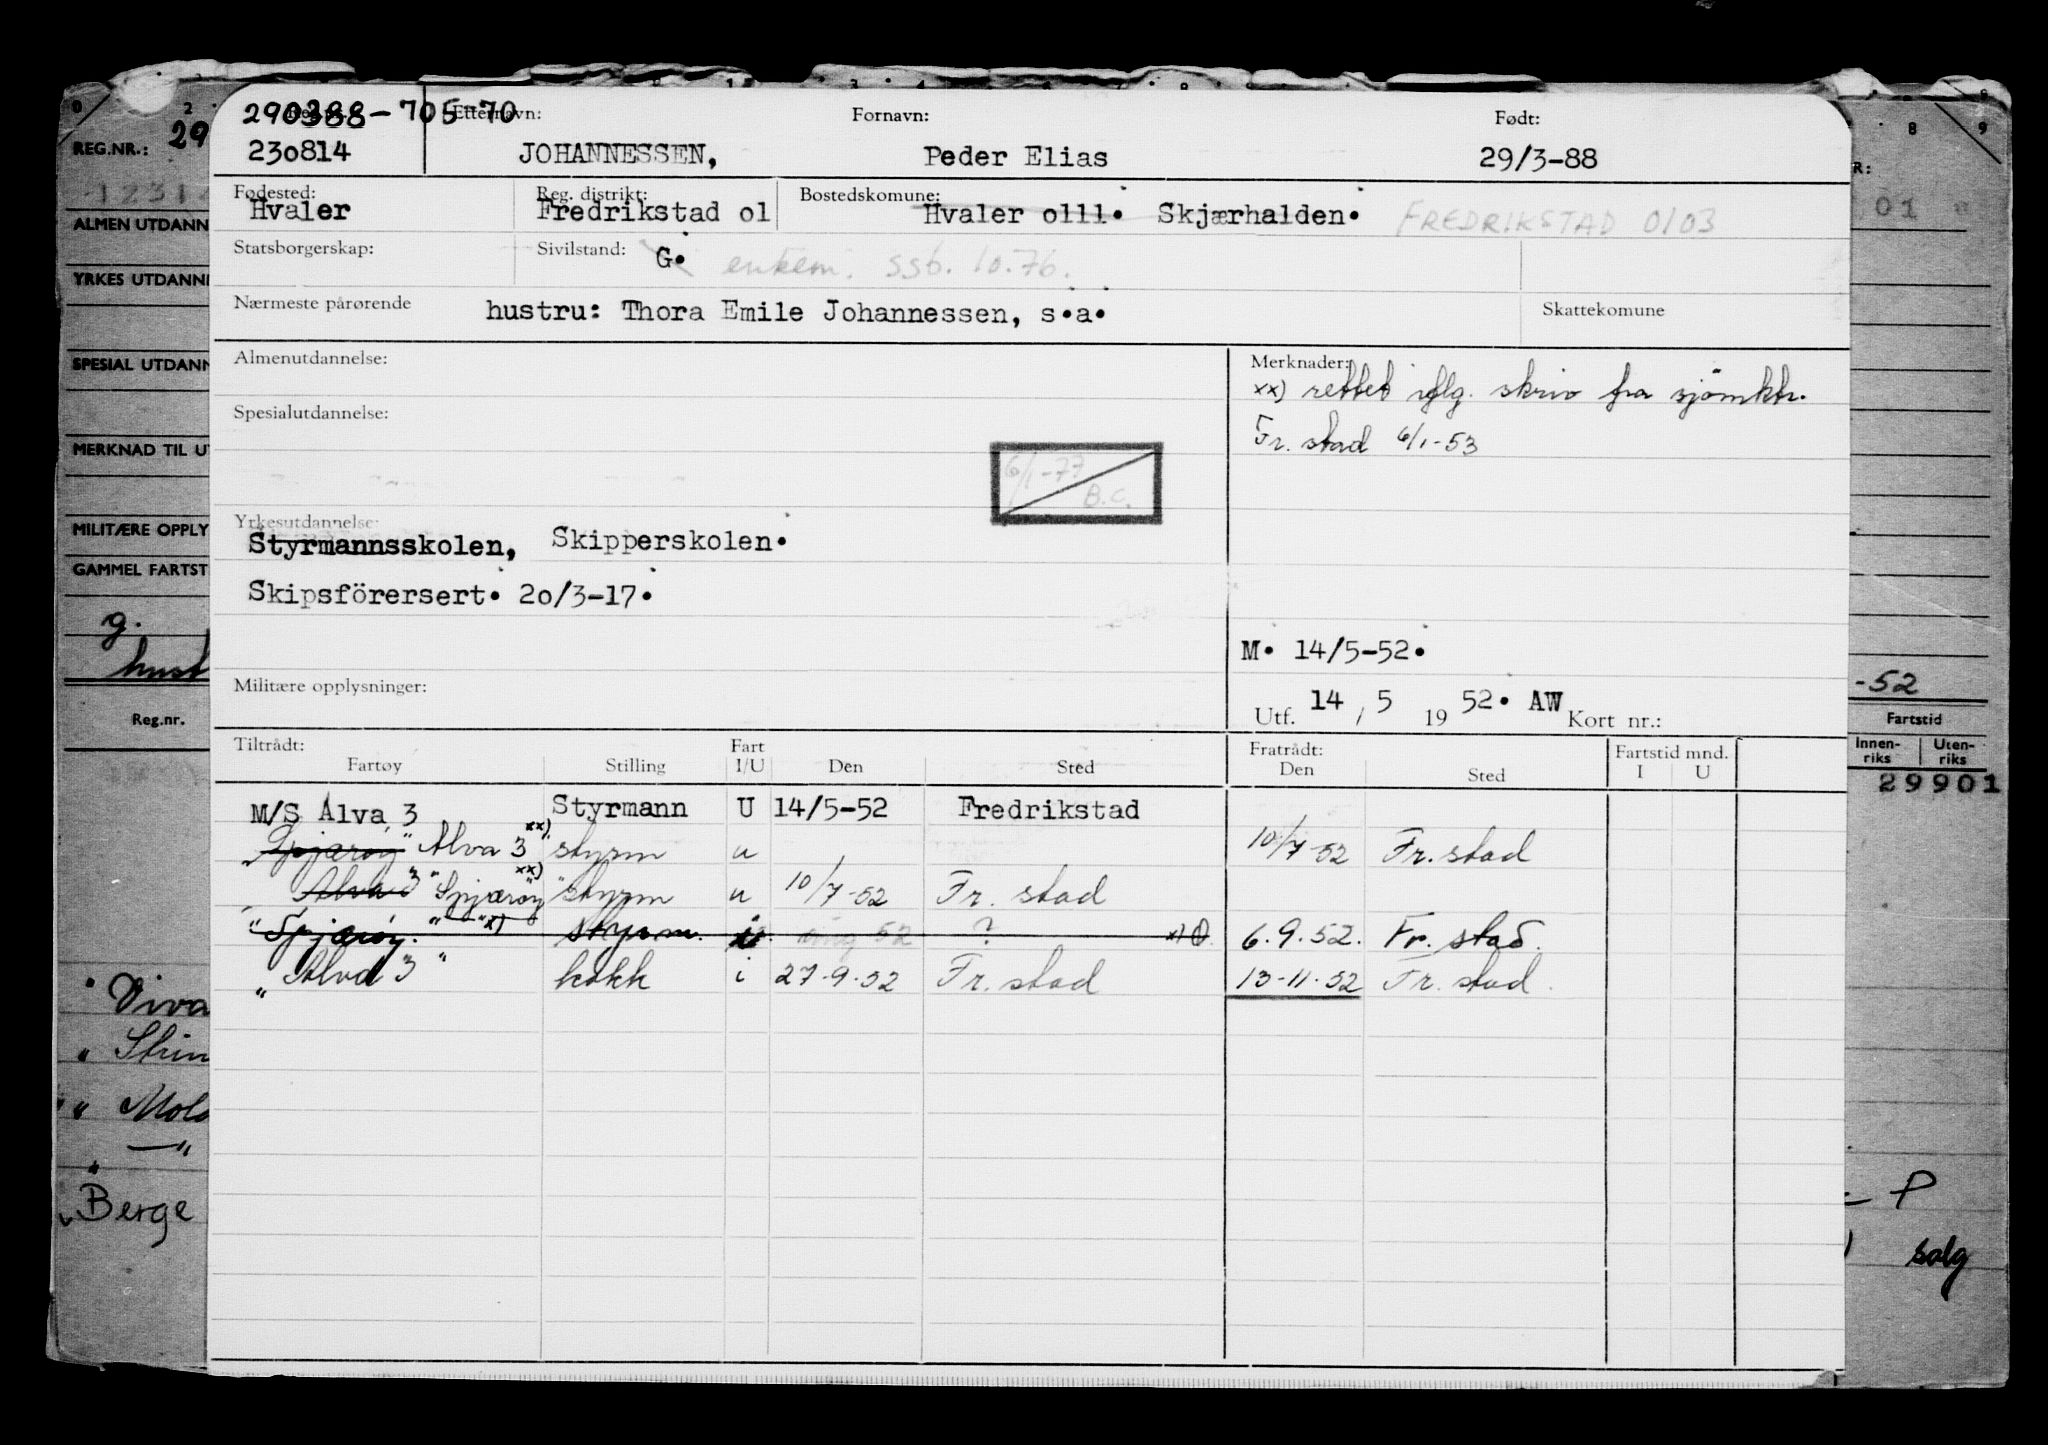 290388-705-70
Reg.nr. Etternavn: Fornavn: Født:
230814 JOHANNESSEN, Peder Elias 29/3-88
Fødested: Reg. distrikt: Bostedskomune:
Hvaler Fredrikstad o1 Hvaler o111. Skjærhalden. FREDRIKSTAD 0103
Statsborgerskap: Sivilstand: G. enkem. ssb. 10.76.
Nærmeste pårørende hustru: Thora Emile Johannessen, s.a. Skattekomune
Almenutdannelse: Merknader:
xx) rettet iflg. skriv fra sjömktr.
Spesialutdannelse: Fr. stad 6/1-53
6/1-77
B.C.
Yrkesutdannelse:
Styrmannsskolen, Skipperskolen.
Skipsförersert. 2o/3-17.
M. 14/5-52.
Militære opplysninger:
Utf. 14 / 5 19 52. AW Kort nr.:
Tiltrådt: Fart Fratrådt: Fartstid mnd.
Fartøy Stilling I/U Den Sted Den Sted I U
M/S Alva 3 Styrmann U 14/5-52 Fredrikstad
"Spjærøy" Alva 3 xx) styrm u 10/7-52 Fr. stad
Alva 3" "Spjærøy" xx) styrm u 10/7-52 Fr. stad
"Spjærøy." "x) styrm. 52 ? x) 6.9.52. Fr. stad.
"Alva 3" kokk i 27-9-52 Fr. stad 13-11-52 Fr. stad.
REG.NR.: 29
ALMEN UTDANN
YRKES UTDANNI
SPESIAL UTDANN
MERKNAD TIL U
MILITÆRE OPPLY
GAMMEL FARTST
g.
hust
Reg.nr.
" Viva
" Strin
" Mold
" —"
" Berge
R:
01
-52
Fartstid
Innen-riks Uten-riks
29901
- P
salg